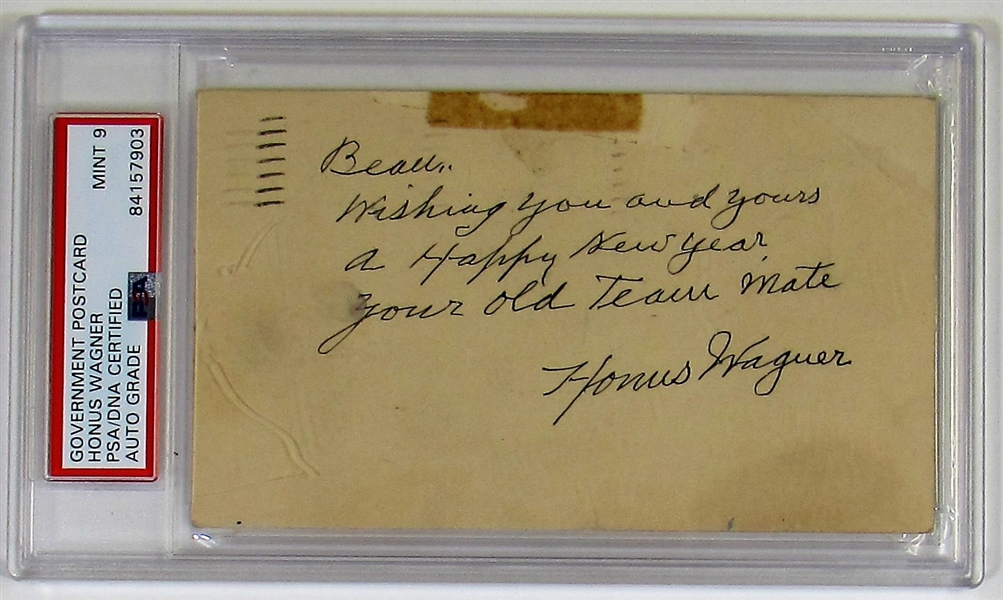 GOVERNMENT POSTCARD
HONUS WAGNER
PSA/DNA CERTIFIED
AUTO GRADE
MINT 9
84157903
PSA
Beall..
Wishing you and yours
a Happy New year
your old Team Mate
Honus Wagner